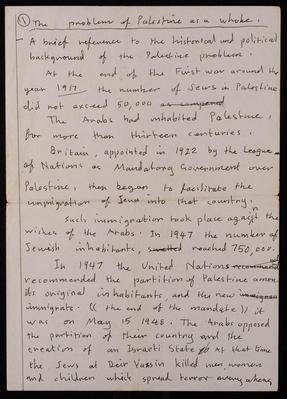 ① The problem of Palestine as a whole.
A brief reference to the historical and political
background of the Palestine problem.
At the end of the First war around the
year 1917 the number of Jews in Palestine
did not exceed 50,000 as compared
The Arabs had inhabited Palestine,
for more than thirteen centuries.
Britain, appointed in 1922 by the League
of Nations as Mandatory Government over
Palestine, then began to facilitate the
immigration of Jews into that country.
Such immigration took place against the
wishes of the Arabs. In 1947 the number of
Jewish inhabitants, reached 750,000.
In 1947 the United Nations recommended
recommended the partition of Palestine among
its original inhabitants and the new
immigrants. (( the end of the mandate )) it
was on May 15 1948. The Arabs opposed
the partition of their country and the
creation of an Israeli State. At that time
the Jews at Deir Yassin killed men, women
and children which spread terror everywhere